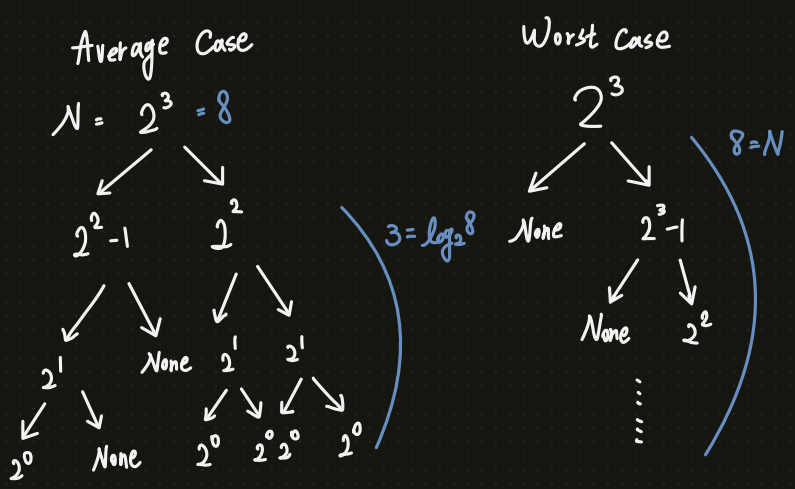 Average Case
N = 2³ = 8
2²-1 2²
3 = log₂8
2¹ None 2¹ 2¹
2⁰ None 2⁰ 2⁰ 2⁰ 2⁰
Worst Case
2³
8=N
None 2³-1
None 2²